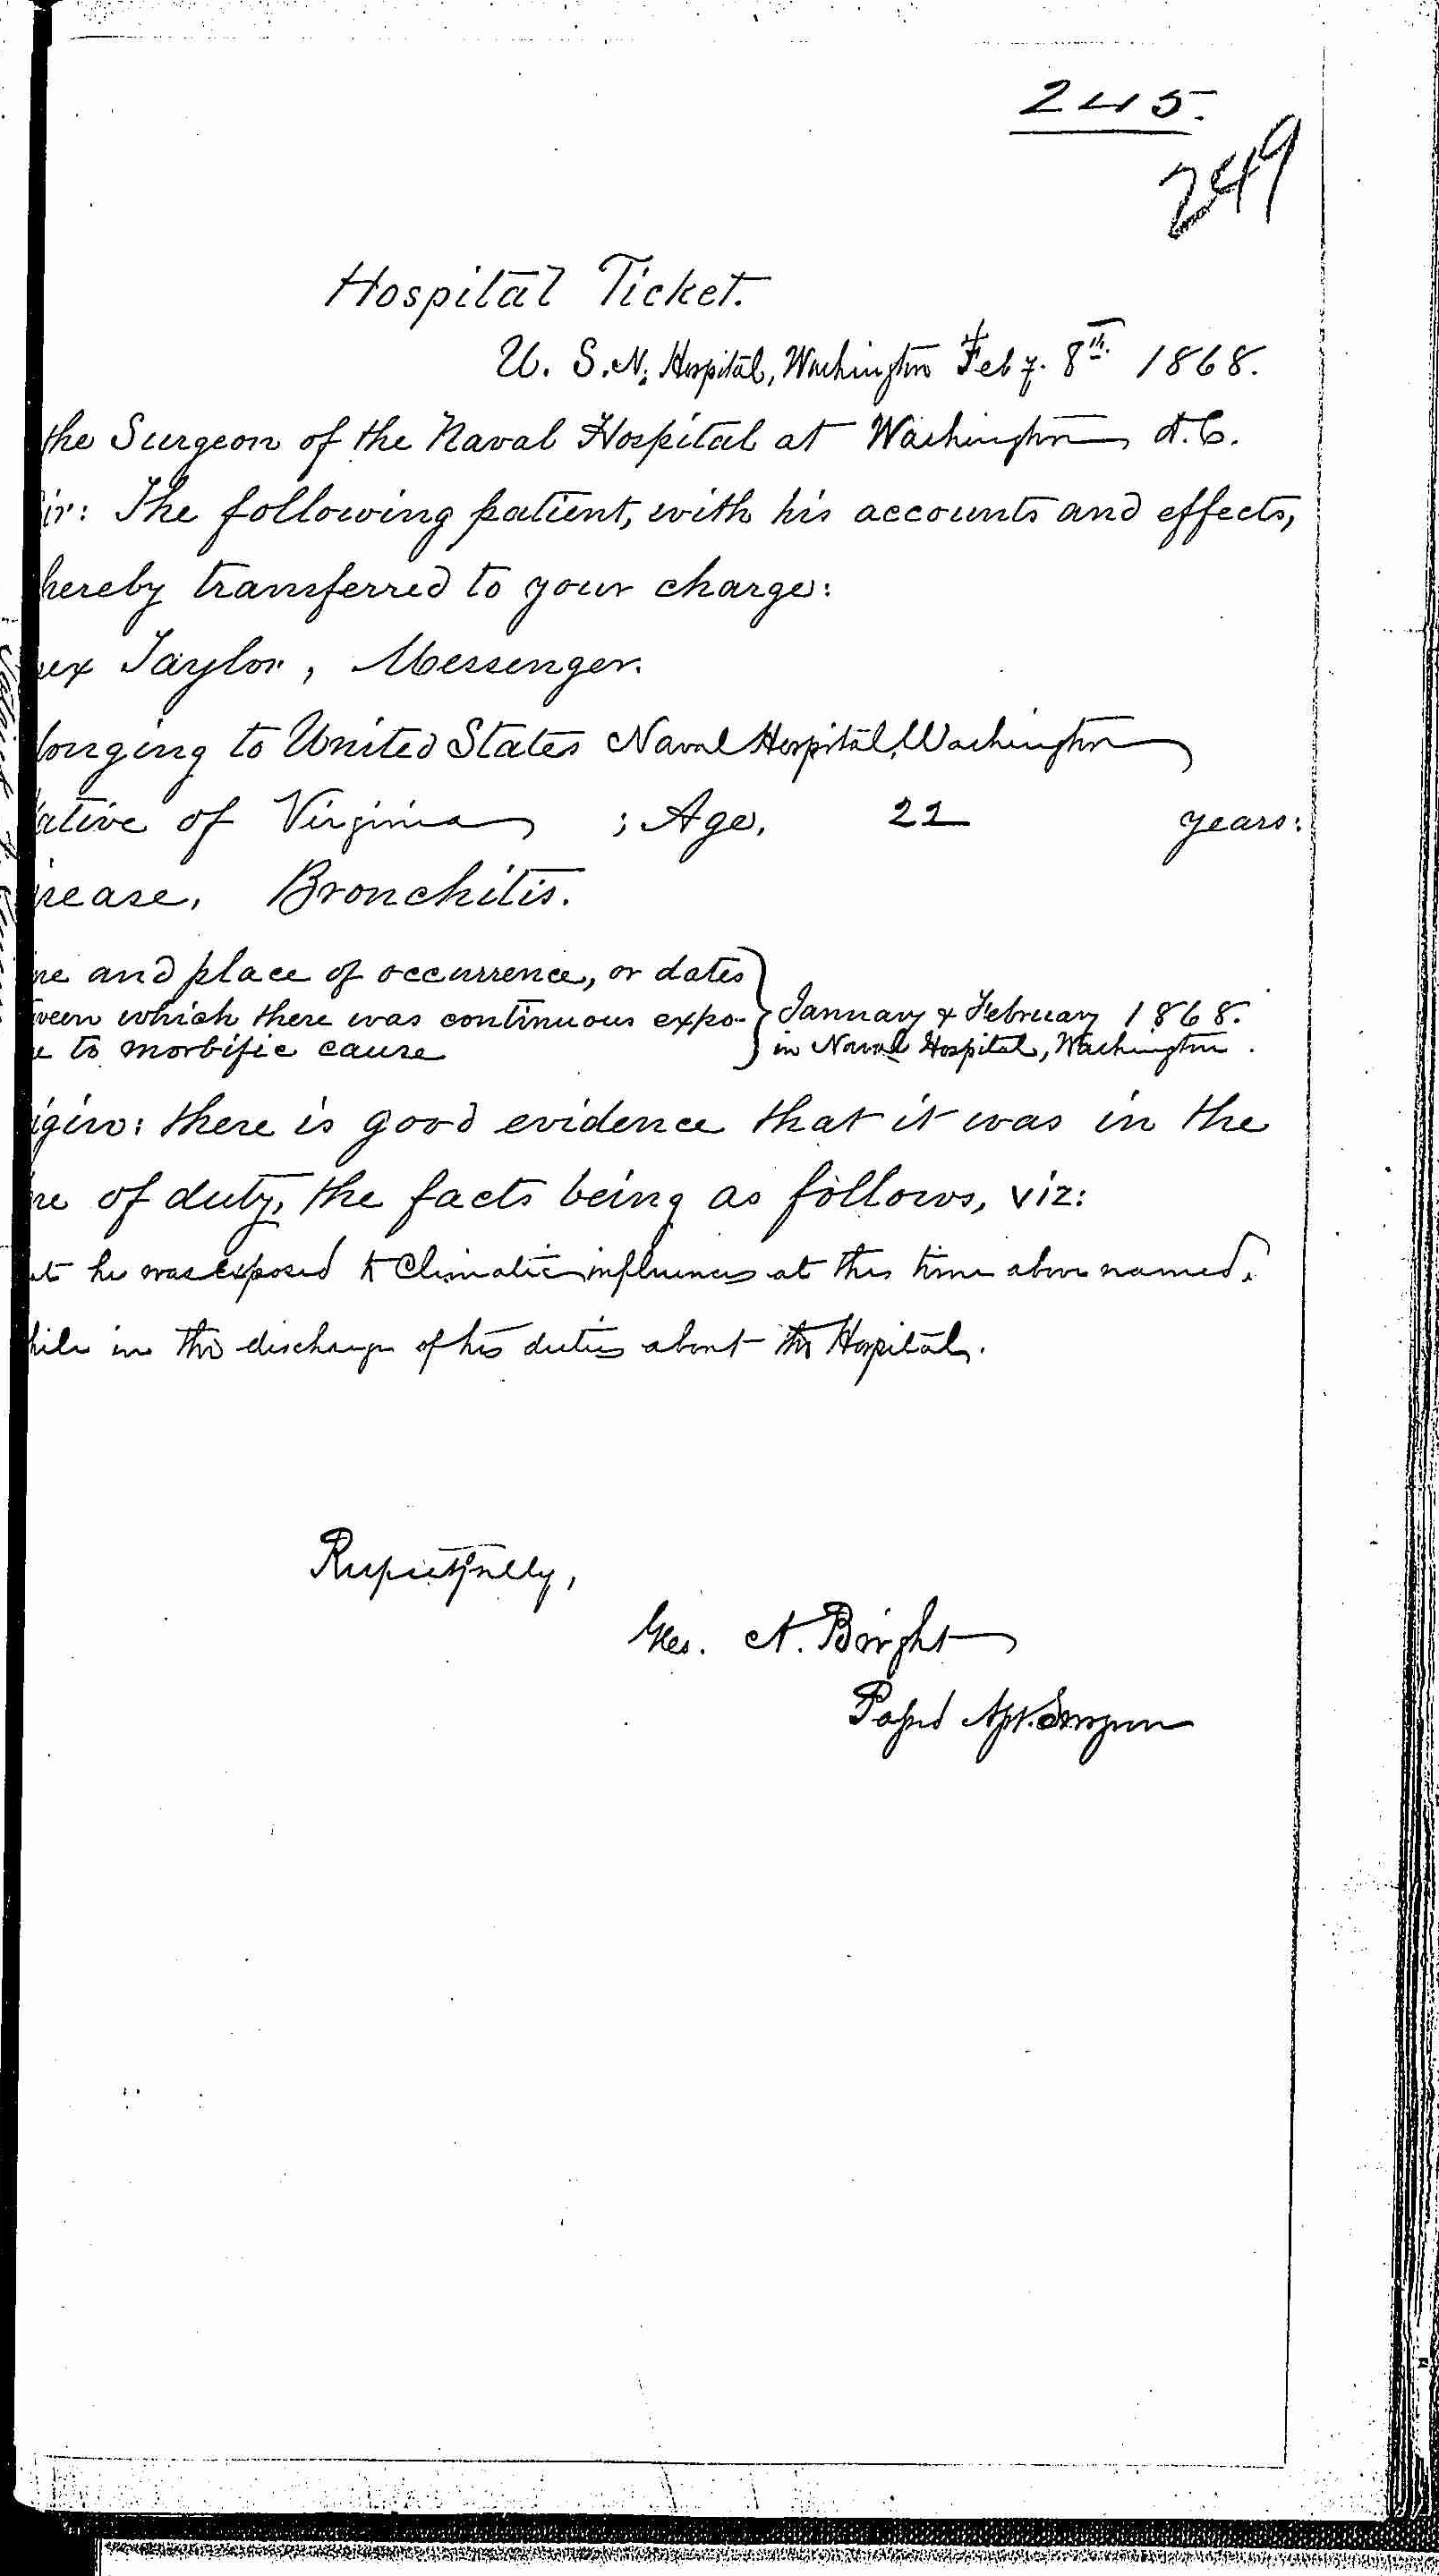 245.
249
Hospital Ticket.
U. S. N. Hospital, Washington Feby. 8th 1868.
the Surgeon of the Naval Hospital at Washington D.C.
ir: The following patient, with his accounts and effects,
hereby transferred to your charge:
ex Taylor, Messenger.
longing to United States Naval Hospital, Washington
ative of Virginia ; Age, 22 years:
isease, Bronchitis.
me and place of occurrence, or dates
tween which there was continuous expo-
e to morbific cause
January & February 1868.
in Naval Hospital, Washington.
igin: there is good evidence that it was in the
ne of duty, the facts being as follows, viz:
at he was exposed to Climatic influences at the time above named,
hile in the discharge of his duties about the Hospital.
Respectfully,
Geo. A. Bright
Passed Asst. Surgeon